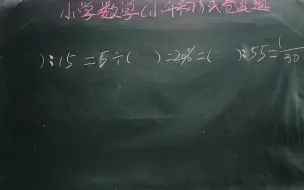 小学数学(小升初)试卷真题
)：15=5÷( )=20%=( )：55=1/30